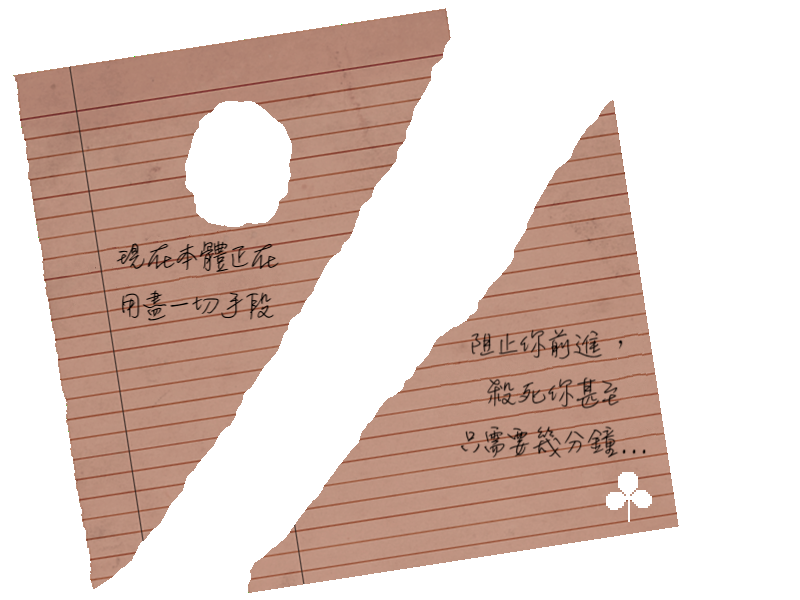 現在本體正在
用盡一切手段
阻止你前進，
殺死你甚至
只需要幾分鐘...